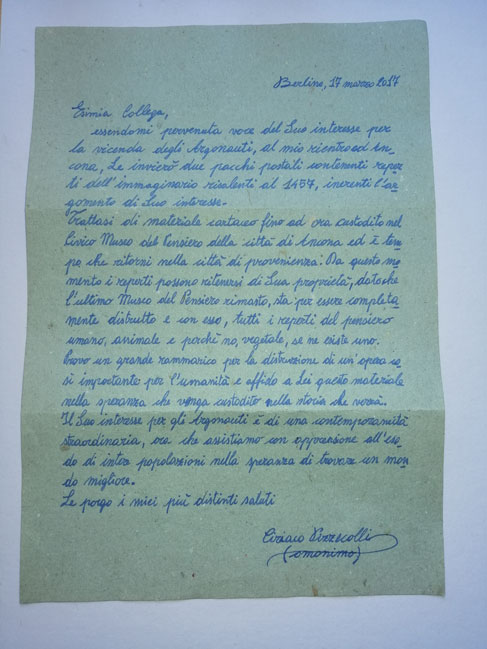 Berlino, 17 marzo 2017
Esimia Collega,
essendomi pervenuta voce del Suo interesse per
la vicenda degli Argonauti, al mio rientro ad An-
cona, Le invierò due pacchi postali contenenti reper
ti dell'immaginario risalenti al 1457, inerenti l'ar
gomento di Suo interesse.
Trattasi di materiale cartaceo fino ad ora custodito nel
Civico Museo del Pensiero della città di Ancona ed è tem
po che ritorni nella città di provenienza. Da questo mo
mento i reperti possono ritenersi di Sua proprietà, dato che
l'ultimo Museo del Pensiero rimasto, sta per essere completa
mente distrutto e con esso, tutti i reperti del pensiero
umano, animale e perchè no, vegetale, se ne esiste uno.
Provo un grande rammarico per la distruzione di un'opera co
sì importante per l'umanità e affido a Lei questo materiale
nella speranza che venga custodito nella storia che verrà.
Il Suo interesse per gli Argonauti è di una contemporaneità
straordinaria, ora che assistiamo con apprensione all'eso
do di intere popolazioni nella speranza di trovare un mon
do migliore.
Le porgo i miei più distinti saluti
Ciriaco Pizzecolli
(omonimo)